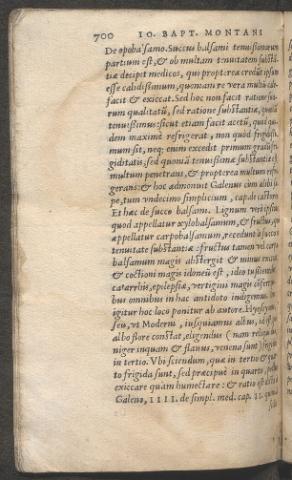 700 IO. BAPT. MONTANI
De opobalsamo. Succus balsami tenuissimarum
partium est, & ob multam tenuitatem substã
tiæ decipit medicos, qui propterea credũt ipsum
esse calidissimum, quoniam re vera multũ cale
facit & exiccat. Sed hoc non facit ratione sua
rum qualitatũ, sed ratione substantiæ, quia
tenuissimus: sicut etiam facit acetũ, quod qui
dem maximè refrigerat, non quòd frigidis-
simum sit, neq; enim excedit primum gradũ fri
giditatis: sed quoniã tenuissimæ substantiæ est
multum penetrans, & propterea multum refri
gerans: & hoc admonuit Galenus cùm alibi sæ
pe, tum vndecimo simplicium, cap. de castoreo
Et hæc de succo balsami. Lignum verò ipsius
quod appellatur xylobalsamum, & fructus, qui
appellatur carpobalsamum, recedunt à succi
tenuitate substantiæ: fructus tamen vel carpo
balsamum magis abstergit & minus
& coctioni magis idoneũ est, ideo tussientib.
catarrhis, epilepsiæ, vertigini magis
bus omnibus in hac antidoto indigemus.
igitur hoc loco ponitur ab autore. Hyoscyam.
seu, vt Moderni, iusquiamus albus, id est
albo flore constat, eligendus (nam reliqui
niger inquam & flauus, venena sunt) frigidus
in tertio. Vbi sciendum, quæ in tertio & quar
to frigida sunt, sed præcipuè in quarto,
exiccare quàm humectare: & ratio est
Galeno, IIII. de simpl. med. cap. 22.